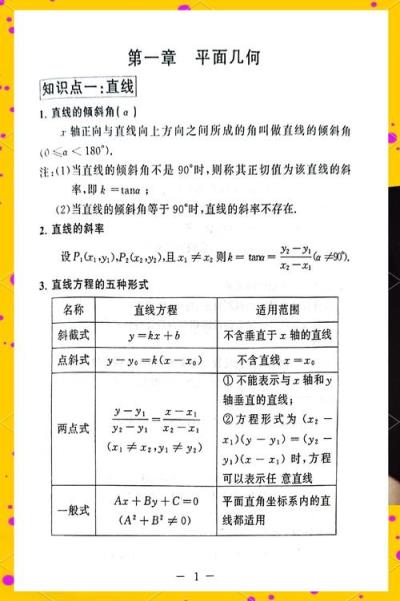 第一章 平面几何
知识点一:直线
1. 直线的倾斜角(α)
x 轴正向与直线向上方向之间所成的角叫做直线的倾斜角
(0≤α<180°).
注:(1)当直线的倾斜角不是 90°时,则称其正切值为该直线的斜
率,即 k =tanα ;
(2)当直线的倾斜角等于 90°时,直线的斜率不存在.
2. 直线的斜率
设 P₁(x₁,y₁),P₂(x₂,y₂),且 x₁ ≠x₂ 则 k = tanα = (y₂-y₁)/(x₂-x₁) (α ≠90°).
3. 直线方程的五种形式
名称 直线方程 适用范围
斜截式 y=kx+b 不含垂直于 x 轴的直线
点斜式 y-y₀=k(x-x₀) 不含直线 x=x₀
两点式 (y-y₁)/(y₂-y₁)=(x-x₁)/(x₂-x₁)
(x₁≠x₂,y₁≠y₂)
①不能表示与 x 轴和 y
轴垂直的直线;
②方程形式为 (x₂ -
x₁)(y - y₁) = (y₂ -
y₁)(x - x₁) 时,方程
可以表示任 意直线
一般式 Ax+By+C=0
(A²+B²≠0)
平面直角坐标系内的直
线都适用
— 1 —